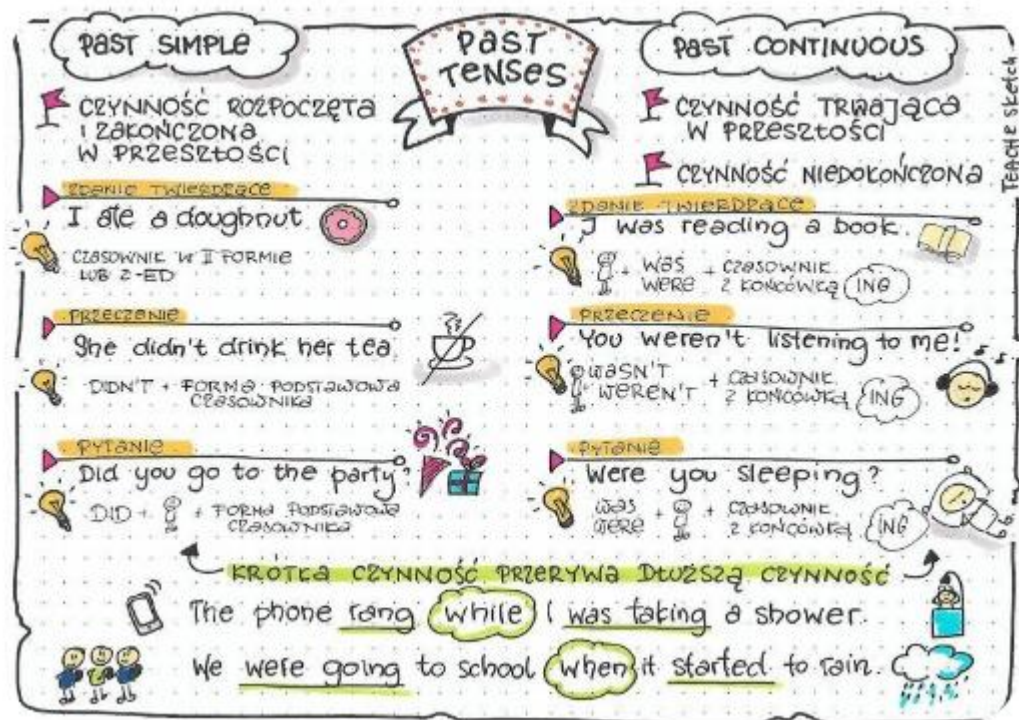 PAST TENSES
PAST SIMPLE
CZYNNOŚĆ ROZPOCZĘTA
I ZAKOŃCZONA
W PRZESZŁOŚCI
ZDANIE TWIERDZĄCE
I ate a doughnut.
CZASOWNIK W II FORMIE
LUB Z -ED
PRZECZENIE
She didn't drink her tea
DIDN'T + FORMA PODSTAWOWA
CZASOWNIKA
PYTANIE
Did you go to the party?
DID + + FORMA PODSTAWOWA
CZASOWNIKA
PAST CONTINUOUS
CZYNNOŚĆ TRWAJĄCA
W PRZESZŁOŚCI
CZYNNOŚĆ NIEDOKOŃCZONA
ZDANIE TWIERDZĄCE
I was reading a book.
+ WAS + CZASOWNIK
WERE Z KOŃCÓWKĄ ING
PRZECZENIE
You weren't listening to me!
WASN'T + CZASOWNIK
WEREN'T Z KOŃCÓWKĄ ING
PYTANIE
Were you sleeping?
WAS + + CZASOWNIK
WERE Z KOŃCÓWKĄ ING
KRÓTKA CZYNNOŚĆ PRZERYWA DŁUŻSZĄ CZYNNOŚĆ
The phone rang while I was taking a shower.
We were going to school when it started to rain.
TEACHE SKETCH